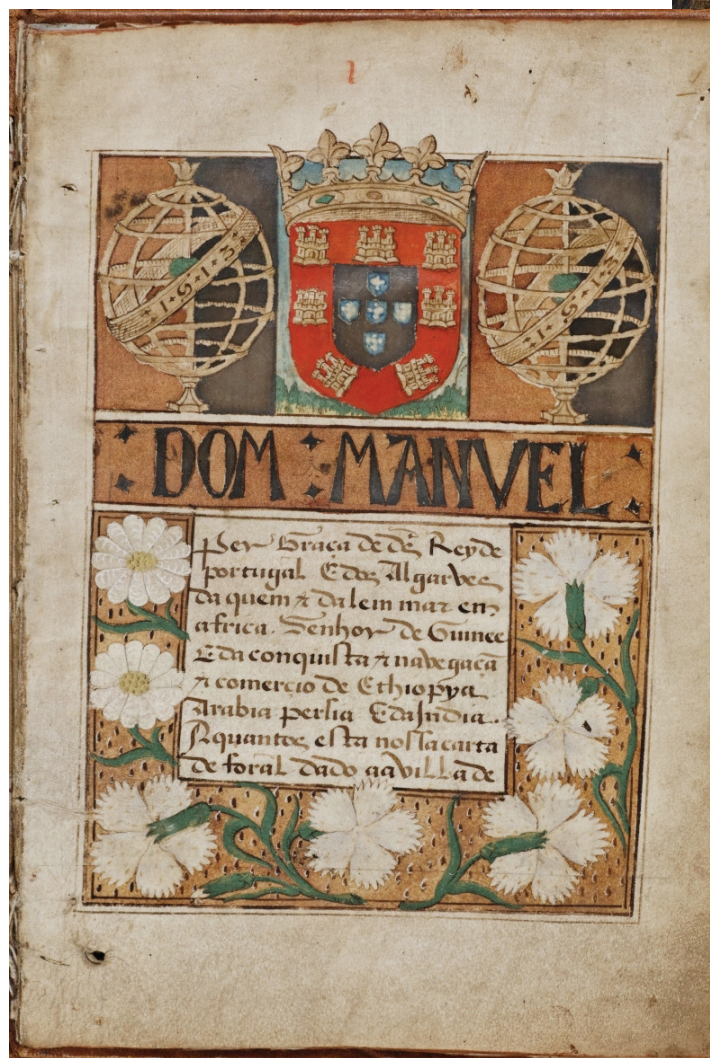 1
·1·5·1·3· ·1·5·1·3
DOM MANVEL
Per Graça de ds̃ Rey de
portugal E dos Algarves
da quem ⁊ da lem mar em
africa. Senhor de Guinee
E da conquista ⁊ navegaçã
⁊ comerçio de Ethiopya
Arabia persia E da India.
A quantos esta nossa carta
de foral dado aa villa de